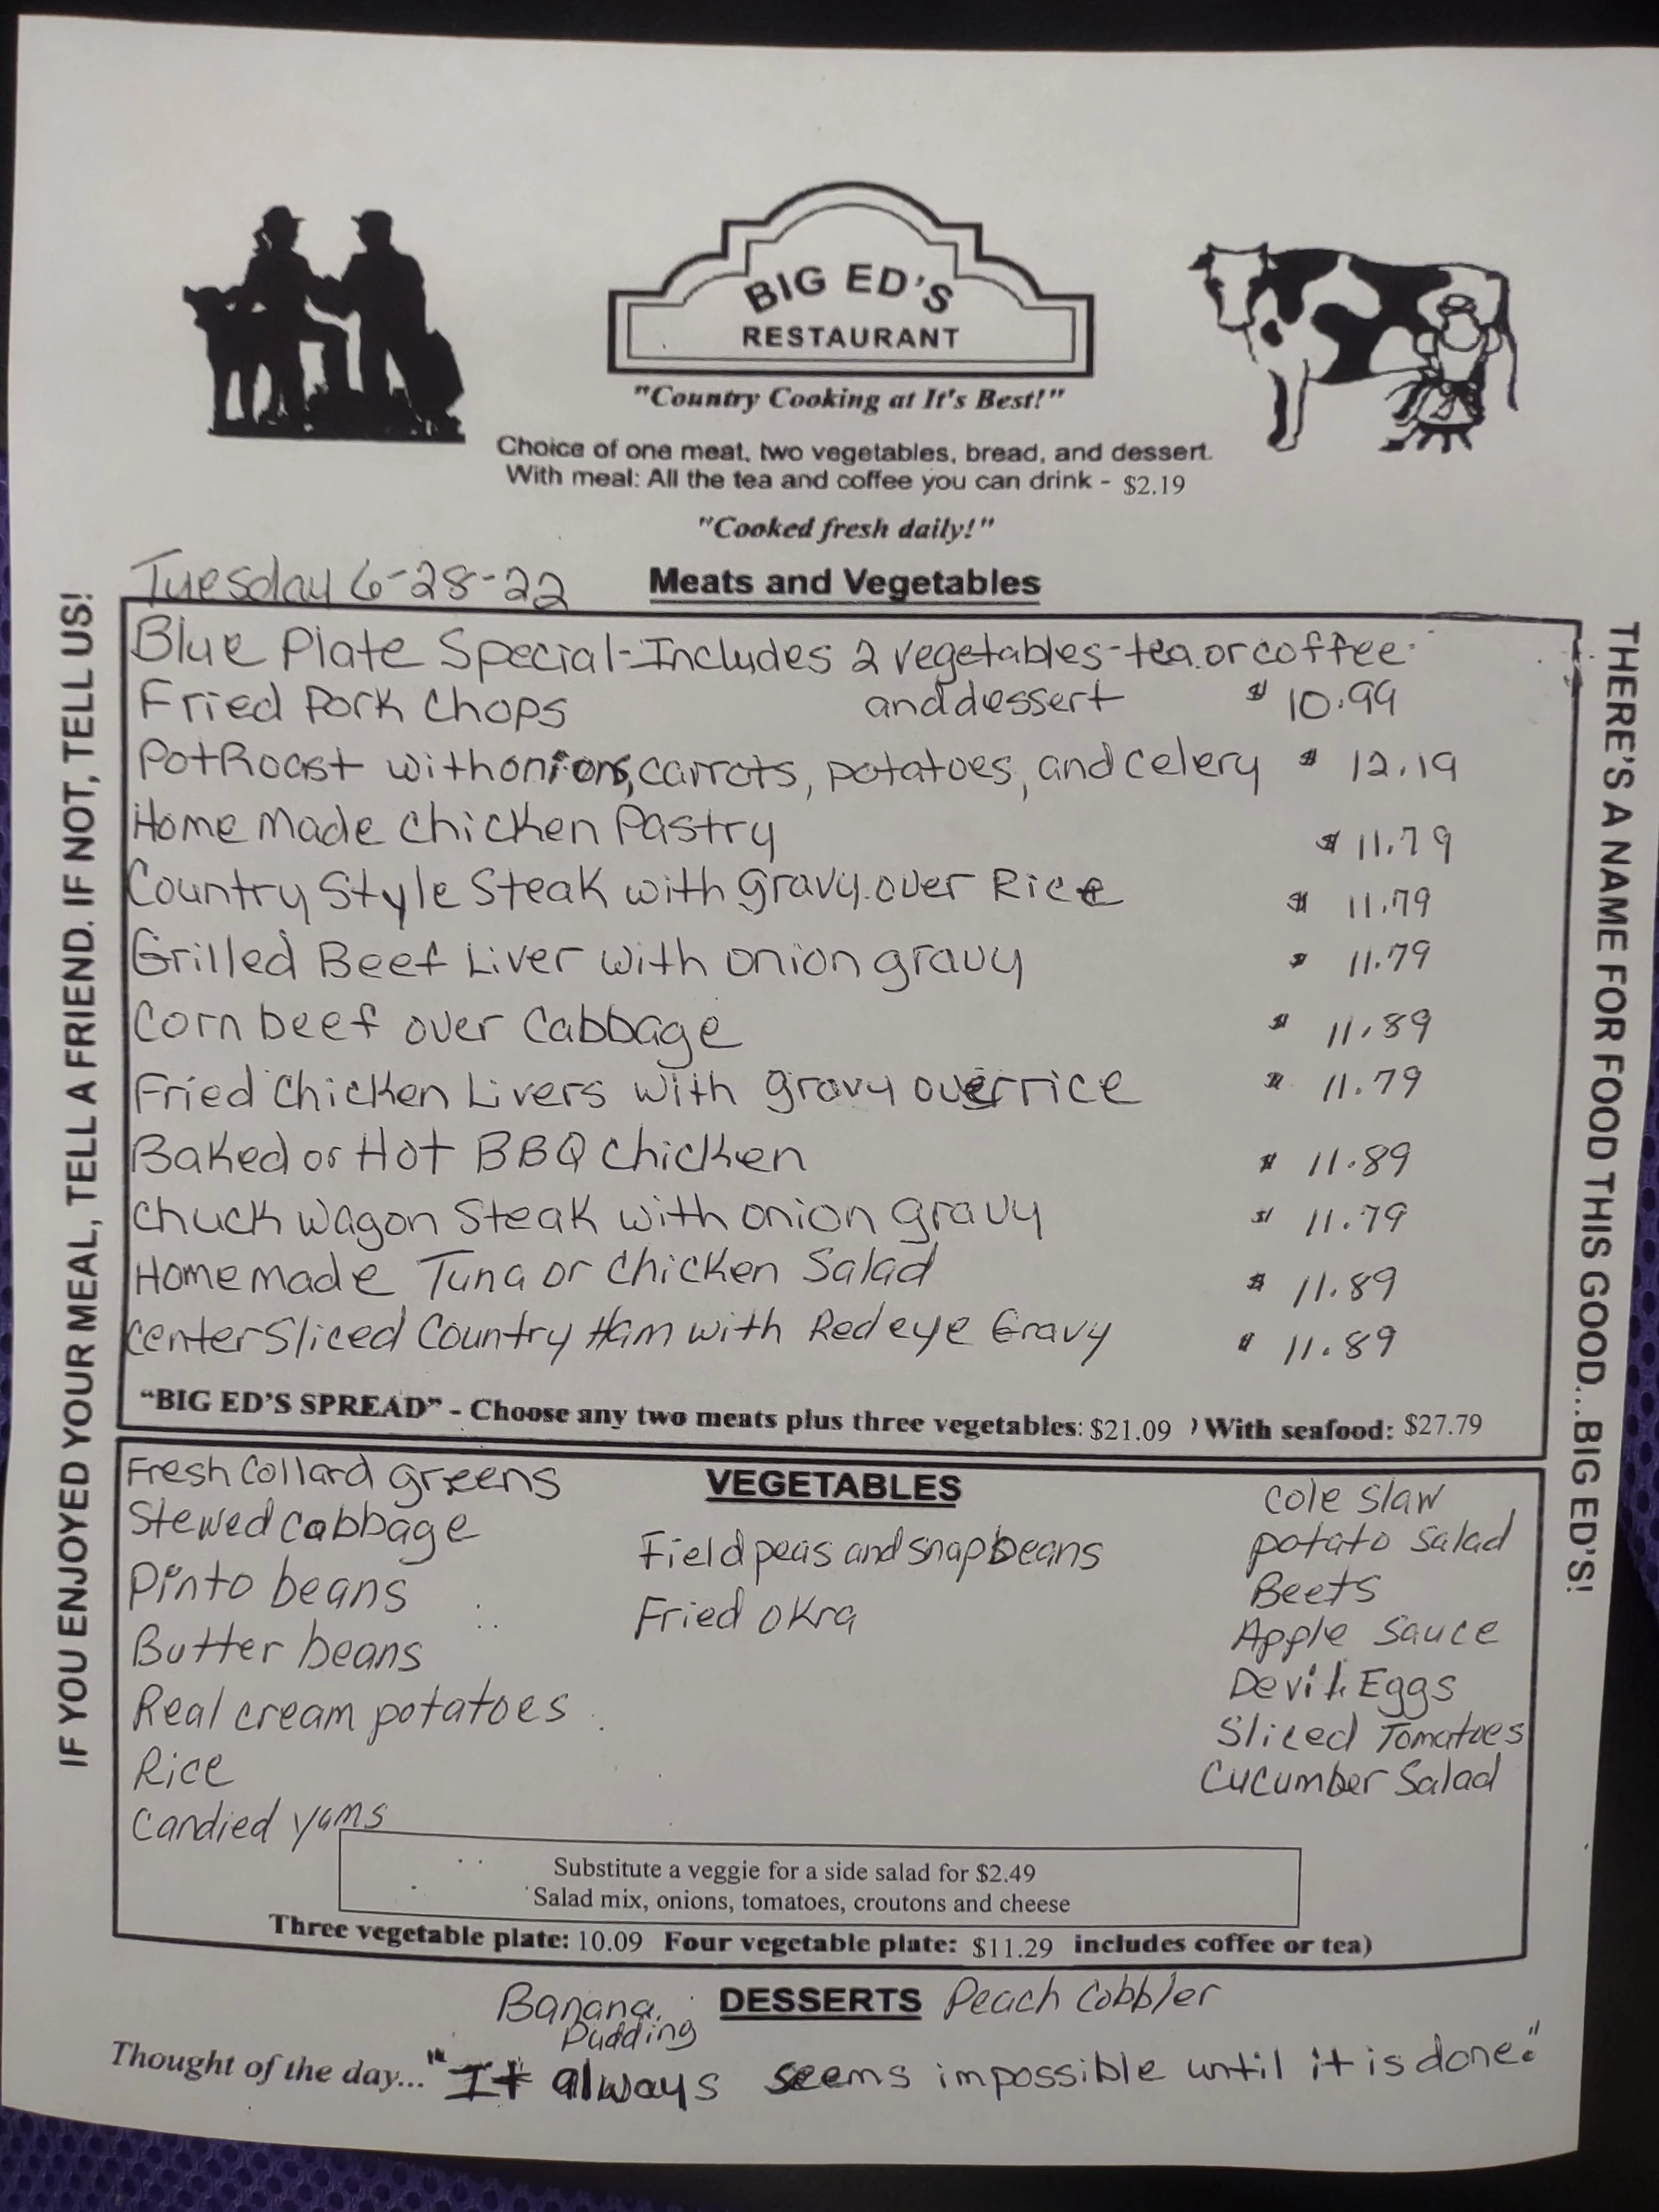 BIG ED'S
RESTAURANT
"Country Cooking at It's Best!"
Choice of one meat, two vegetables, bread, and dessert.
With meal: All the tea and coffee you can drink - $2.19
"Cooked fresh daily!"
Tuesday 6-28-22
Meats and Vegetables
Blue Plate Special-Includes 2 vegetables-tea or coffee
Fried Pork Chops and dessert $ 10.99
Pot Roast with onions, carrots, potatoes, and celery $ 12.19
Home Made Chicken Pastry $ 11.79
Country Style Steak with gravy over Rice $ 11.79
Grilled Beef Liver with onion gravy $ 11.79
Corn beef over Cabbage $ 11.89
Fried Chicken Livers with gravy over rice $ 11.79
Baked or Hot BBQ Chicken $ 11.89
Chuck Wagon Steak with onion gravy $ 11.79
Home made Tuna or Chicken Salad $ 11.89
Center Sliced Country Ham with Red eye Gravy $ 11.89
"BIG ED'S SPREAD" - Choose any two meats plus three vegetables: $21.09 ) With seafood: $27.79
VEGETABLES
Fresh Collard greens
Stewed cabbage
Pinto beans
Butter beans
Real cream potatoes
Rice
Candied yams
Field peas and snap beans
Fried okra
Cole Slaw
potato Salad
Beets
Apple Sauce
Devil Eggs
Sliced Tomatoes
Cucumber Salad
Substitute a veggie for a side salad for $2.49
Salad mix, onions, tomatoes, croutons and cheese
Three vegetable plate: 10.09 Four vegetable plate: $11.29 includes coffee or tea)
DESSERTS
Banana
Pudding
Peach Cobbler
Thought of the day... "It always seems impossible until it is done."
IF YOU ENJOYED YOUR MEAL, TELL A FRIEND. IF NOT, TELL US!
THERE'S A NAME FOR FOOD THIS GOOD...BIG ED'S!